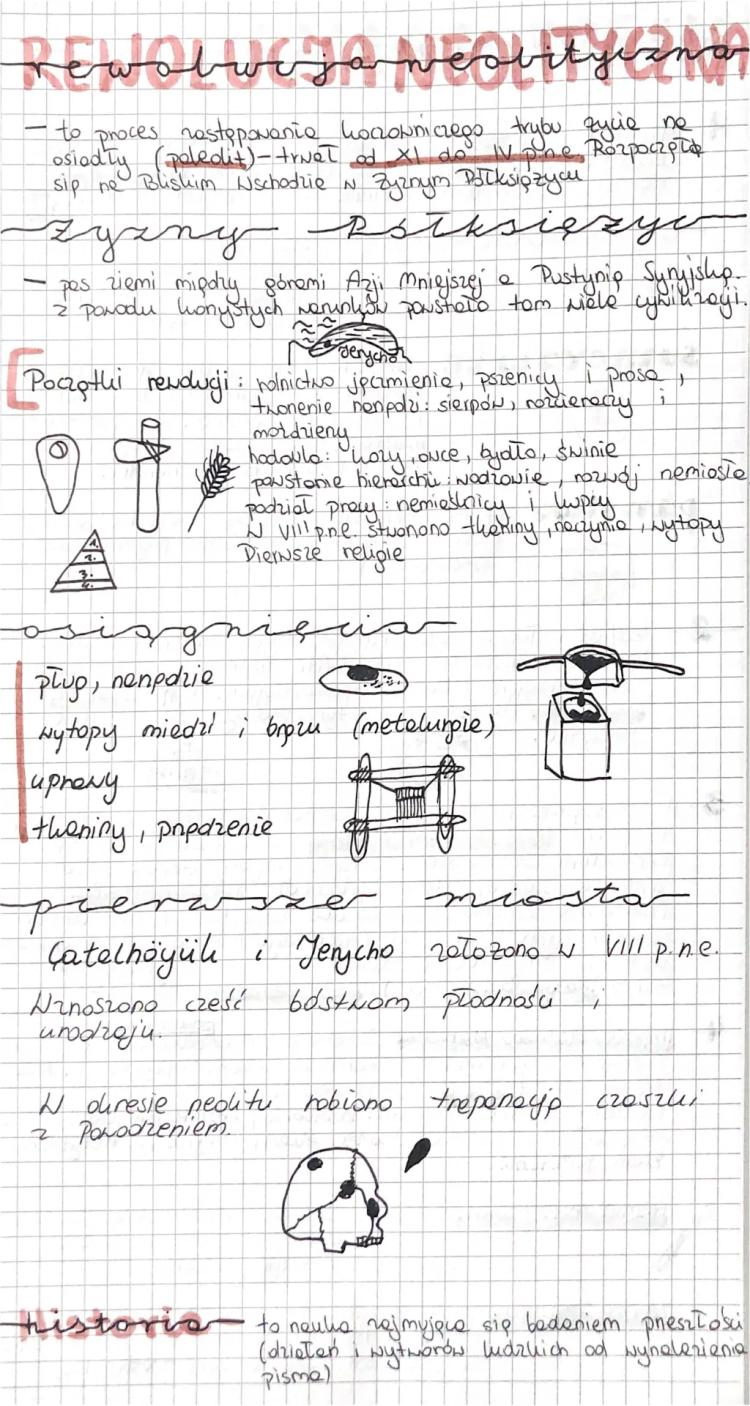 REWOLUCJA NEOLITYCZNA
rewolucja neolityczna
– to proces zastępowania koczowniczego trybu życia na
osiadły (paleolit) – trwał od XI do IV p.n.e. Rozpoczęła
się na Bliskim Wschodzie w Żyznym Półksiężycu
Żyzny Półksiężyc
– pas ziemi między górami Azji Mniejszej a Pustynią Syryjską.
z powodu korzystych warunków powstało tam wiele cywilizacji.
Jerycho
Początki rewolucji: rolnictwo jęczmienia, pszenicy i prosa,
tworzenie narzędzi: sierpów, rozcieraczy i
moździerzy
hodowla: kozy, owce, bydło, świnie
powstanie hierarchii: wodzowie, rozwój rzemiosła
podział pracy: rzemieślnicy i kupcy
W VIII p.n.e. stworzono tkaniny, naczynia, wytopy
Pierwsze religie
1.
2.
3.
4.
osiągnięcia
pług, narzędzia
wytopy miedzi i brązu (metalurgia)
uprawy
tkaniny, przędzenie
pierwsze miasta
Çatelhöyük i Jerycho założono w VIII p.n.e.
Wznoszono cześć bóstwom płodności i
urodzaju.
W okresie neolitu robiono trepanację czaszki
z Powodzeniem.
Historia
historia – to nauka zajmująca się badaniem przeszłości
(działań i wytworów ludzkich od wynalezienia
pisma)